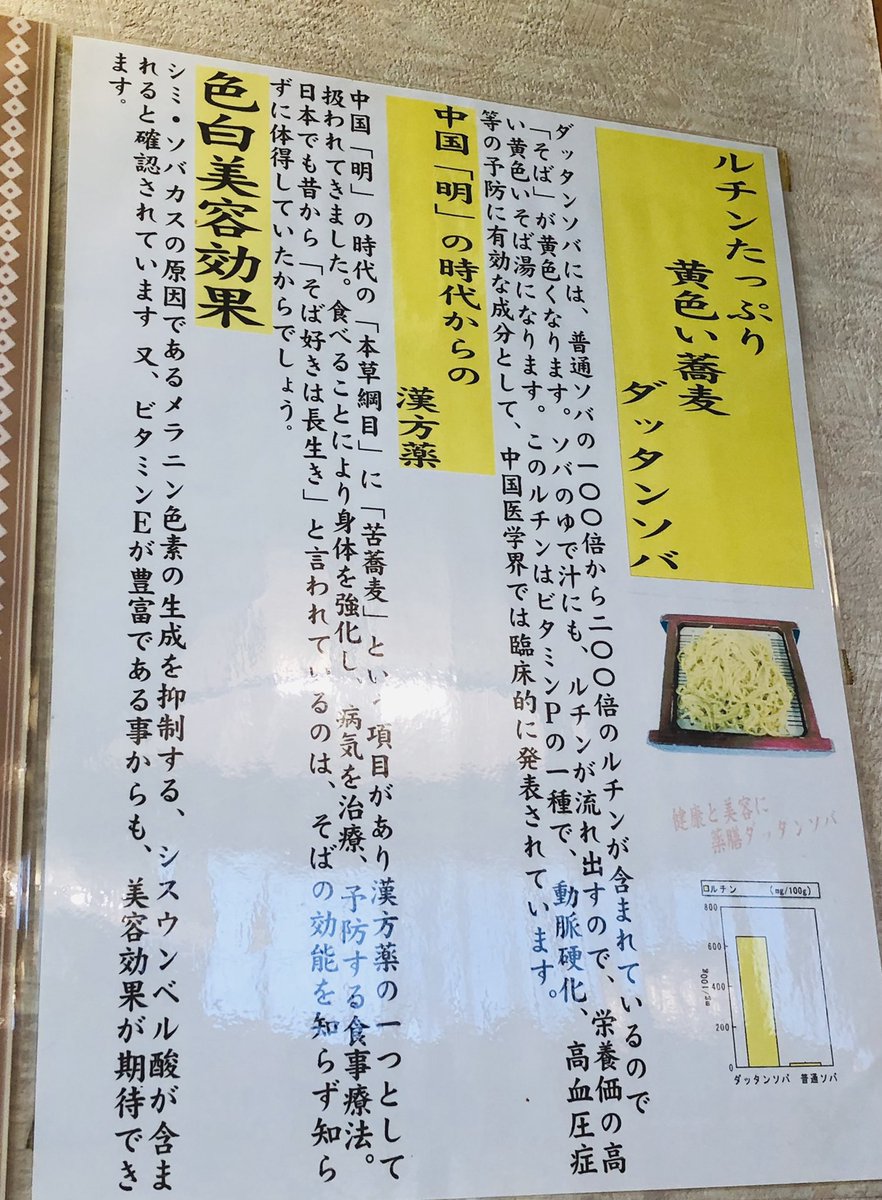 ルチンたっぷり
黄色い蕎麦
ダッタンソバ
ダッタンソバには、普通ソバの一〇〇倍から二〇〇倍のルチンが含まれているので
「そば」が黄色くなります。ソバのゆで汁にも、ルチンが流れ出すので、栄養価の高
い黄色いそば湯になります。このルチンはビタミンPの一種で、動脈硬化、高血圧症
等の予防に有効な成分として、中国医学界では臨床的に発表されています。
健康と美容に
薬膳ダッタンソバ
ロルチン (mg/100g)
800
600
400
200
0
mg/100g
ダッタンソバ 普通ソバ
中国「明」の時代からの
漢方薬
中国「明」の時代の「本草綱目」に「苦蕎麦」という項目があり漢方薬の一つとして
扱われてきました。食べることにより身体を強化し、病気を治療、予防する食事療法。
日本でも昔から「そば好きは長生き」と言われているのは、そばの効能を知らず知ら
ずに体得していたからでしょう。
色白美容効果
シミ・ソバカスの原因であるメラニン色素の生成を抑制する、シスウンベル酸が含ま
れると確認されています 又、ビタミンEが豊富である事からも、美容効果が期待でき
ます。